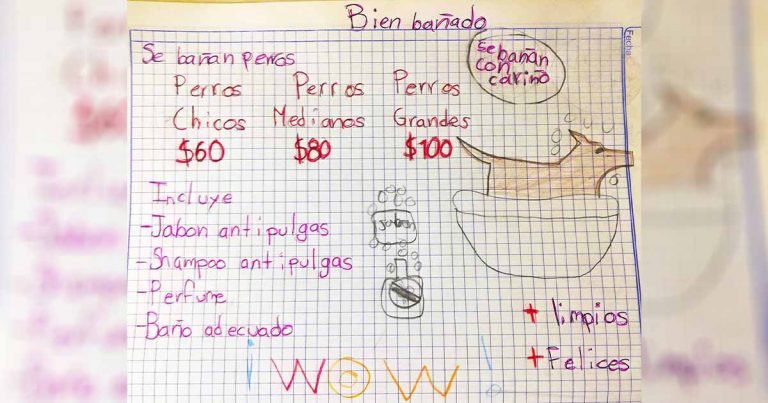 Bien bañado
Fecha
Se bañan perros
Se bañan
con
cariño
Perros Perros Perros
Chicos Medianos Grandes
$60 $80 $100
Incluye
-Jabon antipulgas
Jabon
-Shampoo antipulgas
-Perfume
-Baño adecuado
+ limpios
+ Felices
¡WOW!